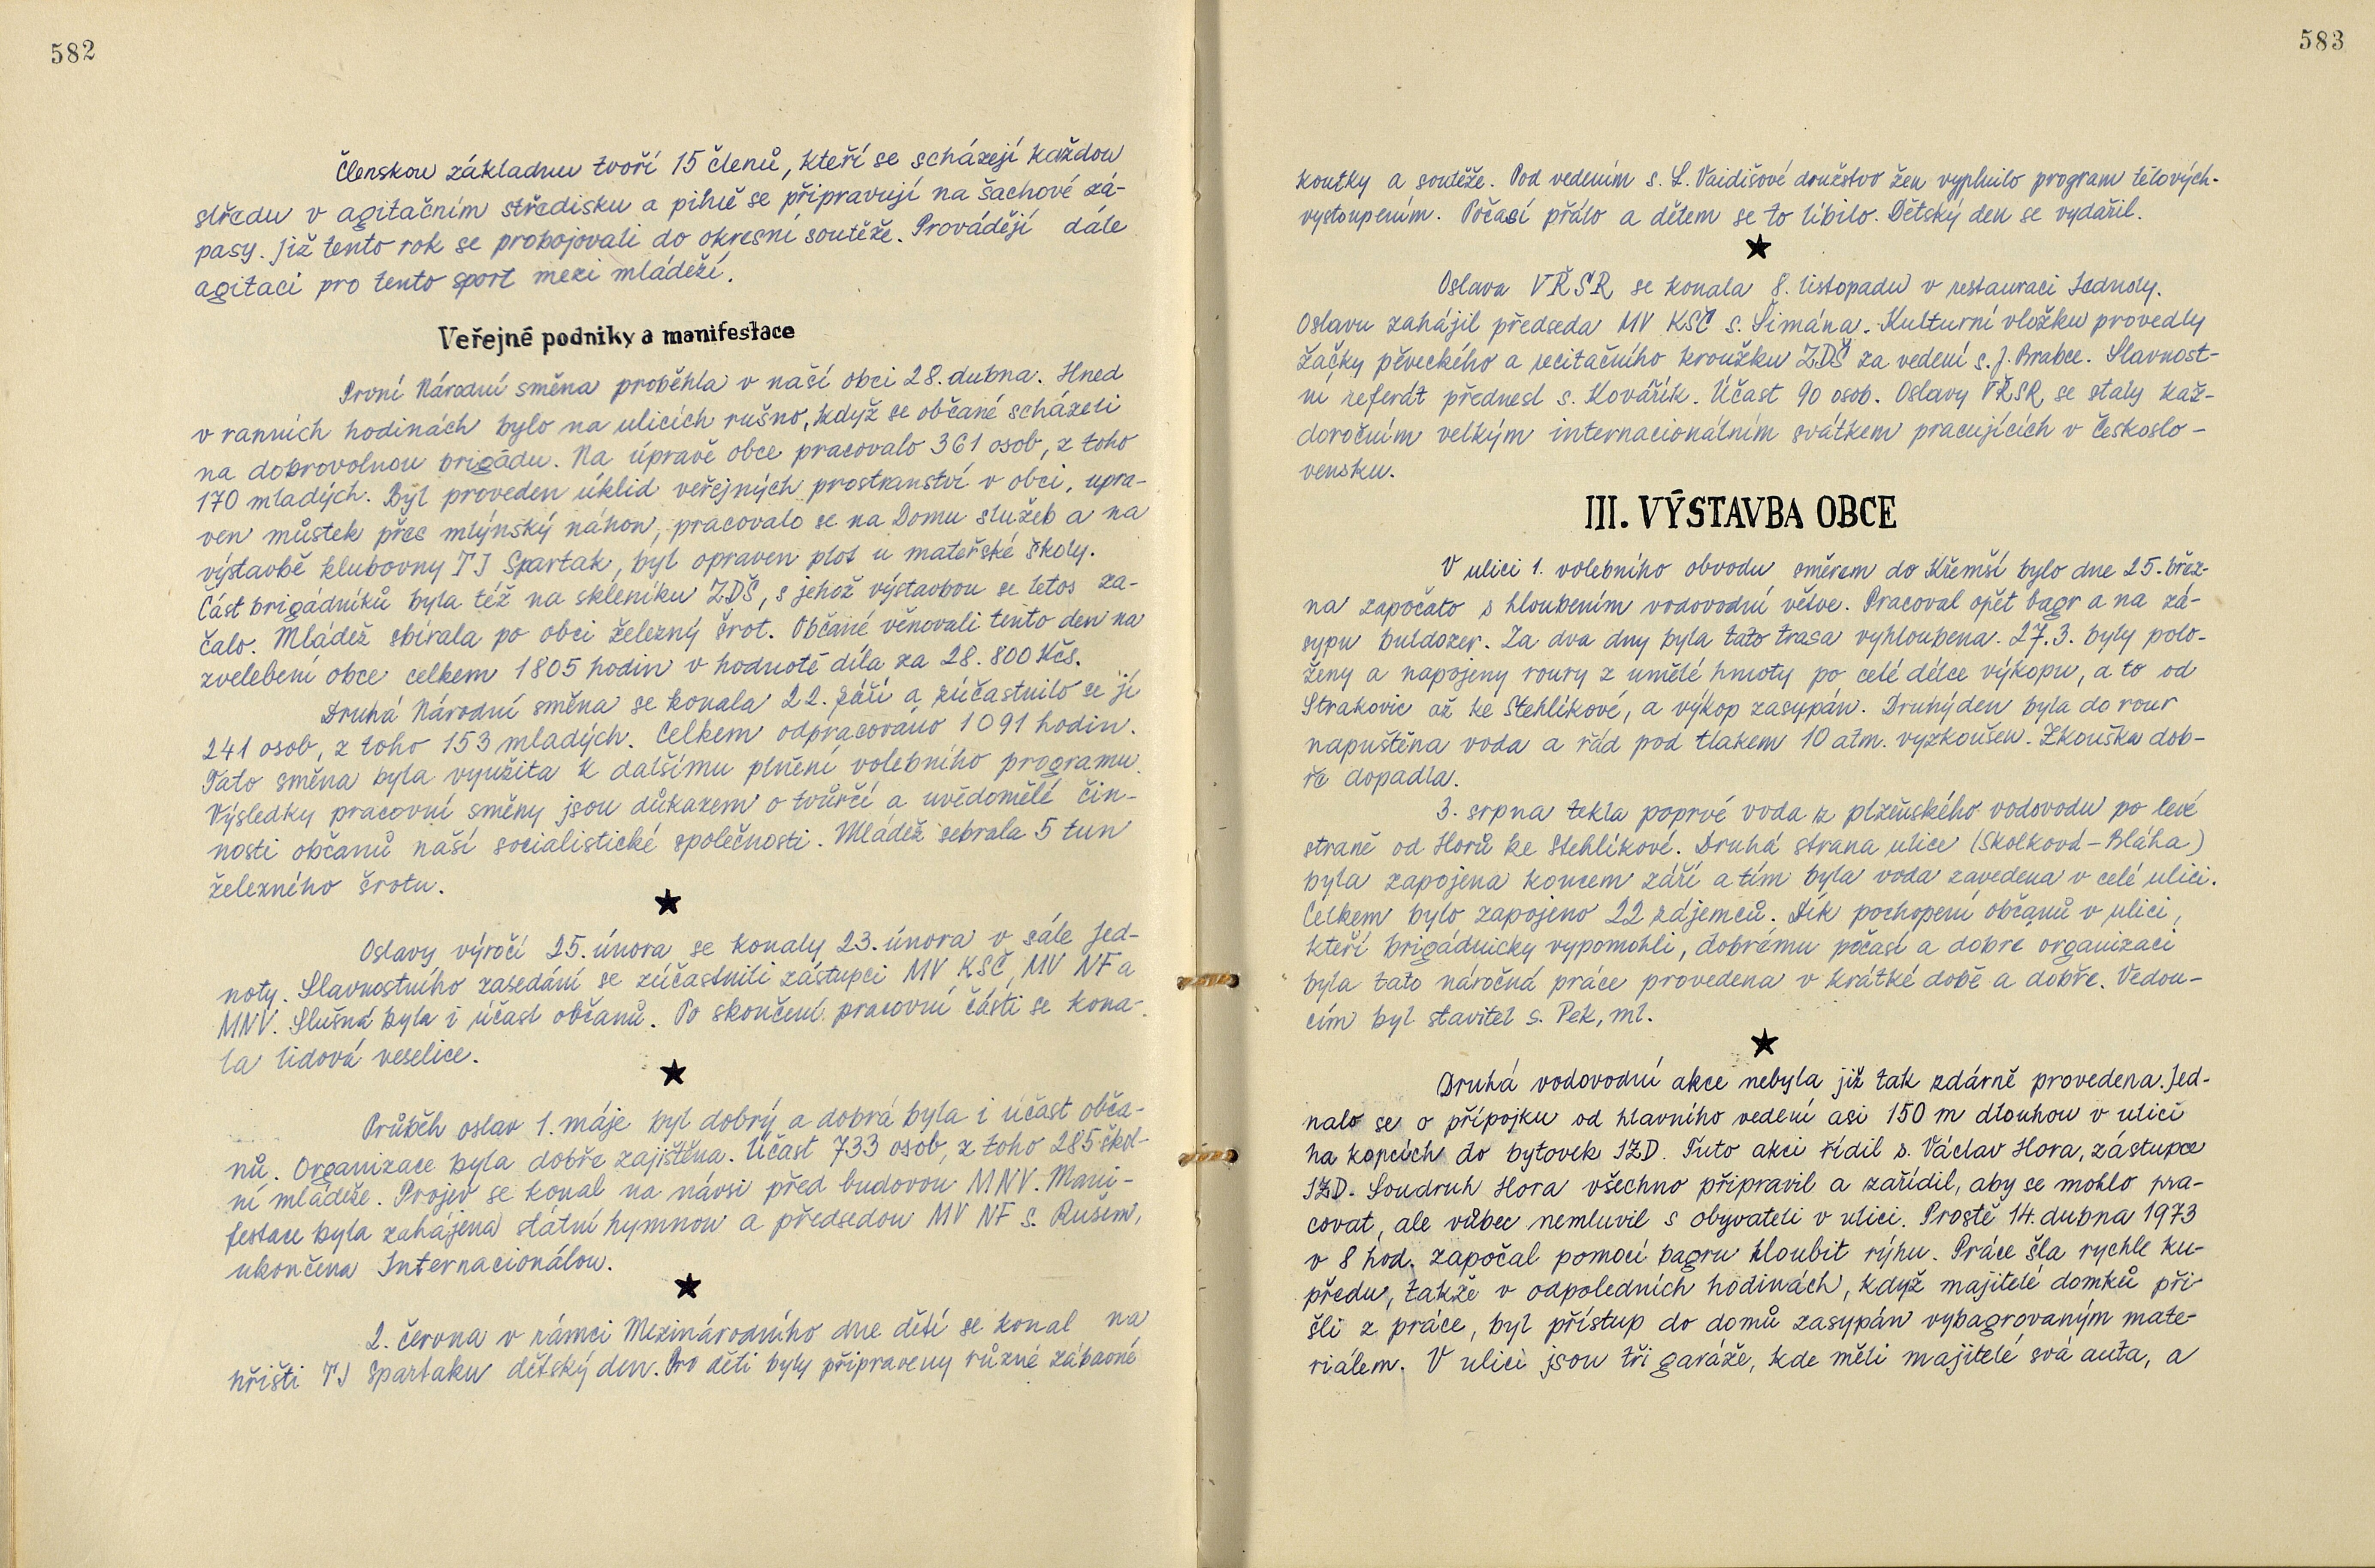 582
Členskou základnu tvoří 15 členů, kteří se scházejí každou
středu v agitačním středisku a pilně se připravují na šachové zá-
pasy. Již tento rok se probojovali do okresní soutěže. Provádějí dále
agitaci pro tento sport mezi mládeží.
Veřejné podniky a manifestace
První Národní směna proběhla v naší obci 28. dubna. Hned
v ranních hodinách bylo na ulicích rušno, když se občané scházeli
na dobrovolnou brigádu. Na úpravě obce pracovalo 361 osob, z toho
170 mladých. Byl proveden úklid veřejných prostranství v obci, upra-
ven můstek přes mlýnský náhon, pracovalo se na Domu služeb a na
výstavbě klubovny TJ Spartak, byl opraven plot u mateřské školy.
Část brigádníků byla též na skleníku ZDŠ, s jehož výstavbou se letos za-
čalo. Mládež sbírala po obci železný šrot. Občané věnovali tento den na
zvelebení obce celkem 1805 hodin v hodnotě díla za 28.800 Kčs.
Druhá Národní směna se konala 22. září a zúčastnilo se jí
241 osob, z toho 153 mladých. Celkem odpracováno 1091 hodin.
Tato směna byla využita k dalšímu plnění volebního programu.
Výsledky pracovní směny jsou důkazem o tvůrčí a uvědomělé čin-
nosti občanů naší socialistické společnosti. Mládež sebrala 5 tun
železného šrotu.
★
Oslavy výročí 25. února se konaly 23. února v sále Jed-
noty. Slavnostního zasedání se zúčastnili zástupci MV KSČ, MV NF a
MNV. Slušná byla i účast občanů. Po skončení pracovní části se kona-
la lidová veselice.
★
Průběh oslav 1. máje byl dobrý a dobrá byla i účast obča-
nů. Organizace byla dobře zajištěna. Účast 733 osob, z toho 285 škol-
ní mládeže. Projev se konal na návsi před budovou MNV. Mani-
festace byla zahájena státní hymnou a předsedou MV NF s. Rušem,
ukončena Internacionálou.
★
2. června v rámci Mezinárodního dne dětí se konal na
hřišti TJ Spartaku dětský den. Pro děti byly připraveny různé zábavné
583
koutky a soutěže. Pod vedením s. L. Vaidišové družstvo žen vyplnilo program tělových.
vystoupením. Počasí přálo a dětem se to líbilo. Dětský den se vydařil.
★
Oslava VŘSR se konala 8. listopadu v restauraci Jednoty.
Oslavu zahájil předseda MV KSČ s. Šimána. Kulturní vložku provedly
žačky pěveckého a recitačního kroužku ZDŠ za vedení s. J. Brabce. Slavnost-
ní referát přednesl s. Kovářík. Účast 90 osob. Oslavy VŘSR se staly kaž-
doročním velkým internacionálním svátkem pracujících v Českoslo-
vensku.
III. VÝSTAVBA OBCE
V ulici 1. volebního obvodu směrem do Křemší bylo dne 25. břez-
na započato s hloubením vodovodní větve. Pracoval opět bagr a na zá-
sypu buldozer. Za dva dny byla tato trasa vyhloubena. 27.3. byly polo-
ženy a napojeny roury z umělé hmoty po celé délce výkopu, a to od
Strakovic až ke Stehlíkové, a výkop zasypán. Druhý den byla do rour
napuštěna voda a řád pod tlakem 10 atm. vyzkoušen. Zkouška dob-
ře dopadla.
3. srpna tekla poprvé voda z plzeňského vodovodu po levé
straně od Horů ke Stehlíkové. Druhá strana ulice (Skolková-Bláha)
byla zapojena koncem září a tím byla voda zavedena v celé ulici.
Celkem bylo zapojeno 22 zájemců. Dík pochopení občanů v ulici,
kteří brigádnicky vypomohli, dobrému počasí a dobré organizaci
byla tato náročná práce provedena v krátké době a dobře. Vedou-
cím byl stavitel s. Pek, ml.
★
Druhá vodovodní akce nebyla již tak zdárně provedena. Jed-
nalo se o přípojku od hlavního vedení asi 150 m dlouhou v ulici
na kopcích do bytovek JZD. Tuto akci řídil s. Václav Hora, zástupce
JZD. Soudruh Hora všechno připravil a zařídil, aby se mohlo pra-
covat, ale vůbec nemluvil s obyvateli v ulici. Prostě 14. dubna 1973
v 8 hod. započal pomocí bagru hloubit rýhu. Práce šla rychle ku-
předu, takže v odpoledních hodinách, když majitelé domků při-
šli z práce, byl přístup do domů zasypán vybagrovaným mate-
riálem. V ulici jsou tři garáže, kde měli majitelé svá auta, a